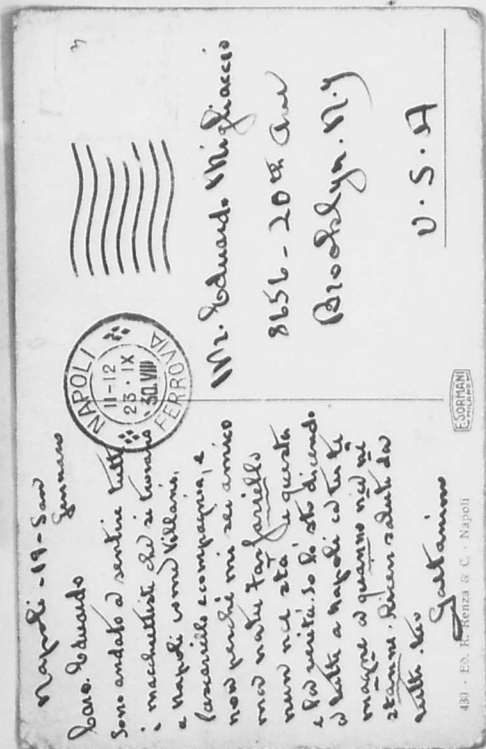 Napoli - 19 - San
Gennaro
Caro Eduardo
Sono andato a sentire tutti
i macchiettisti che si trovano
a Napoli come Villani,
e compagnia, e
non perché mi sei amico
ma nate Farfariello
nun nce stà e questa
è la verità. Io lo sto dicendo
a tutti a Napoli ca tu te
magne a quanno nce ne
stanne. saluti da
tutti. tuo
Gaetanino
NAPOLI
11-12
23·IX
30.VIII
FERROVIA
Mr. Eduardo Migliaccio
8656 - 20th Ave
Brooklyn. N.Y
U.S.A
430 - ED. R. Renza & C. - Napoli
E.SORMANI
MILANO